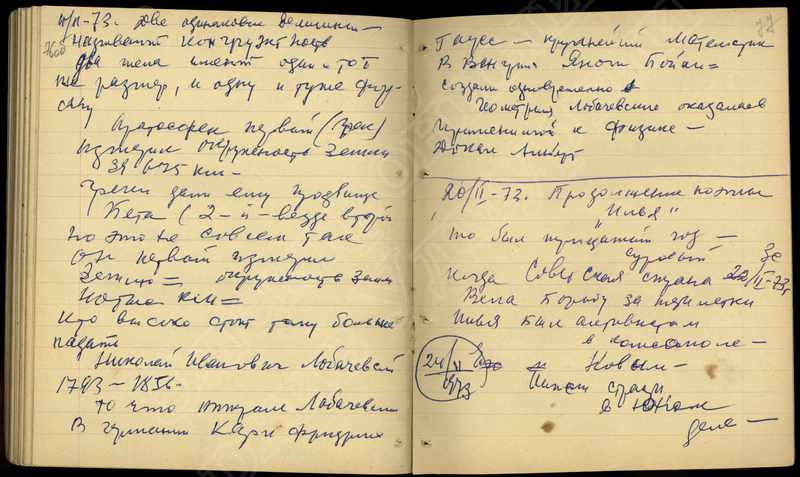 /II-73. Две одинаковые величины —
называют конгруэнтность
два тела имеют один и тот
же размер, и одну и туже фор-
му
Эратосфен первый (грек)
измерил окружность Земли
39 675 км —
Греки дали ему прозвище
Бета (2-й - везде второй
но это не совсем так
он первый измерил
Землю = окружность Земли
км =
Кто высоко стоит тому больнее
падать
Николай Иванович Лобачевский
1793 — 1856 —
то что Лобачевский
В германии Карл Фридрих
77
Гаусс — крупнейший математик
В Венгрии Янош Бойаи =
создали одновременно
Геометрия Лобачевского оказалась
к физике —
20/II-73. Продолжение поэмы
"Илья"
то был тридцатый год —
суровый
когда Советская страна 22/II-73г
Вела борьбу за пятилетки
Илья был активистом
в комсомоле —
24/II 1973
Новым —
в
деле —